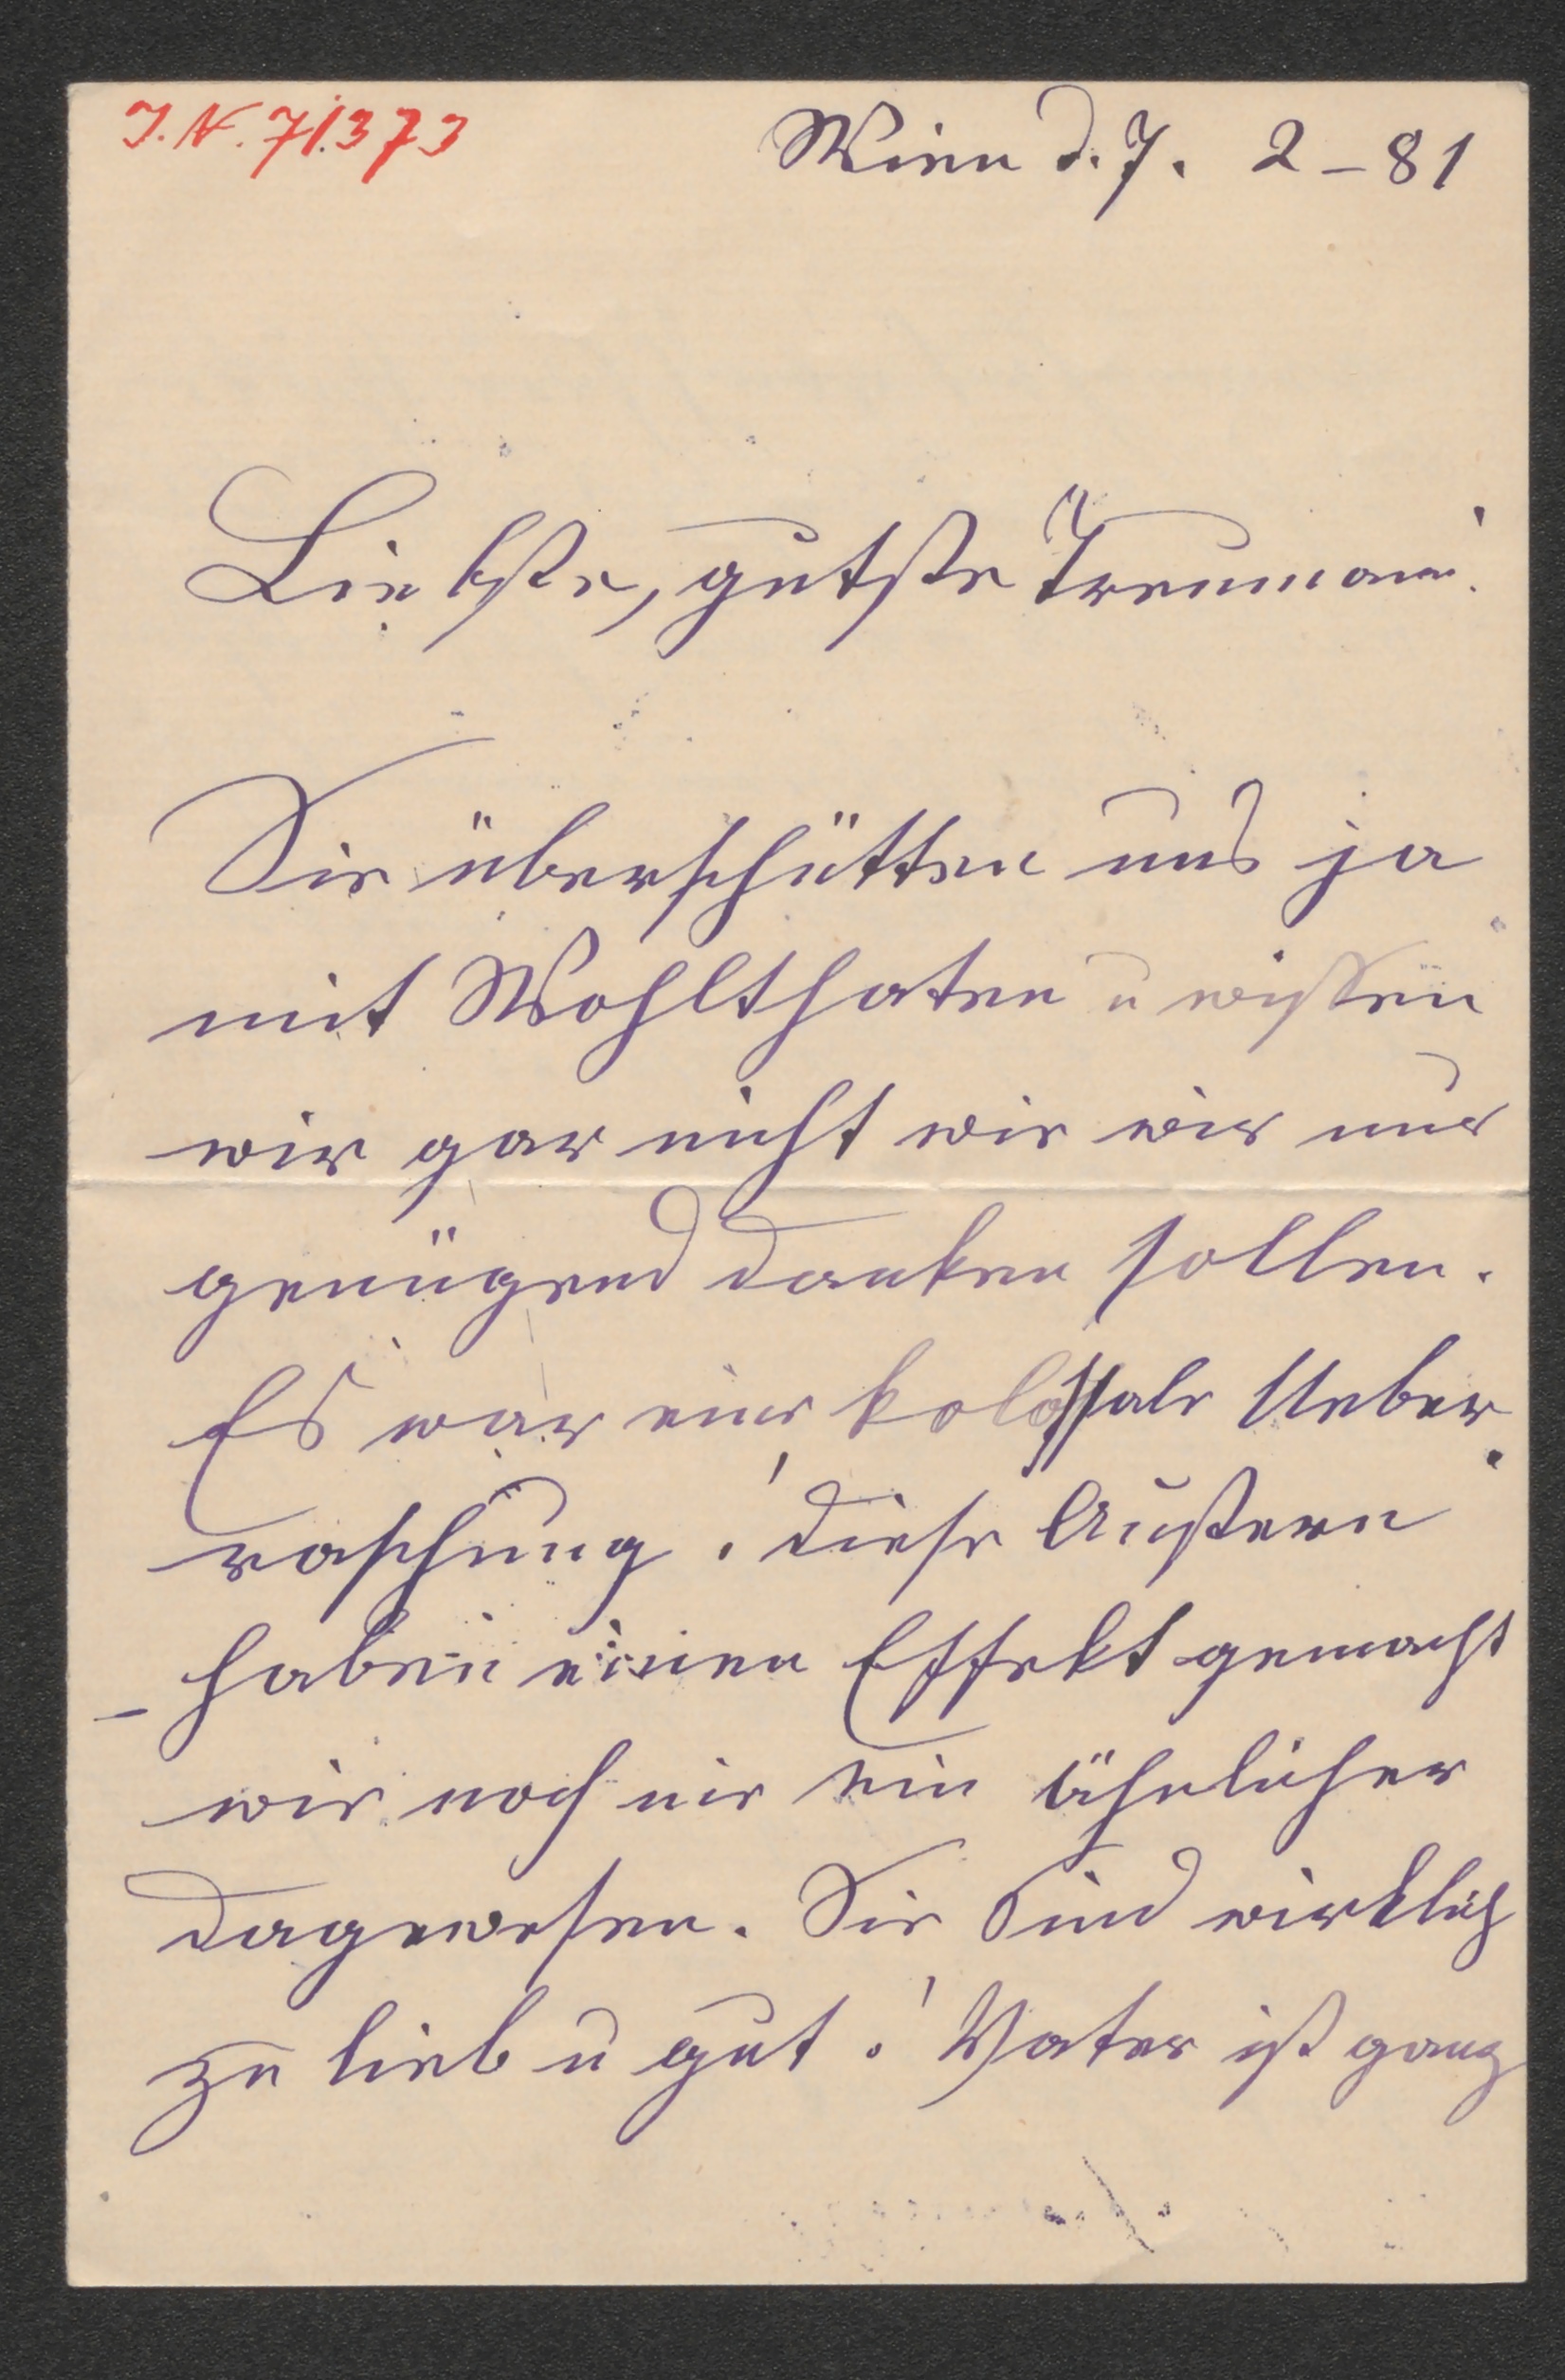 I.N. 71.373
Wien d. 7. 2 – 81
Liebste, gutste Treumann!
Sie überschütten uns ja
mit Wohlthaten u wissen
wir gar nicht wie wir nur
genügend danken sollen.
Es war eine kolossale Ueber
raschung! diese Austern
haben einen Effekt gemacht
wie noch nie ein ähnlicher
dagewesen. Sie Sind wirklich
zu lieb u gut! Vater ist ganz